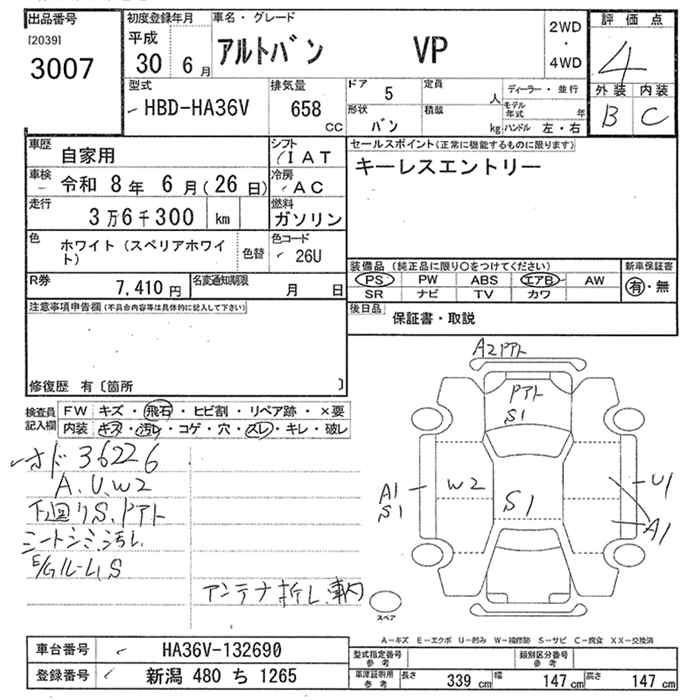 出品番号
[2039]
3007
初度登録年月
平成
30 6月
車名・グレード
アルトバン VP
2WD
・
4WD
評価点
4
外装 内装
B C
型式
HBD-HA36V
排気量
658
CC
ドア 5
形状
バン
定員 人
積載 kg
ディーラー・並行
モデル年式 年
ハンドル 左・右
車歴 自家用
シフト
IAT
車検 令和 8年 6月(26日)
冷房
AC
走行 3万6千300 km
燃料
ガソリン
色 ホワイト(スペリアホワイト)
色替
色コード
26U
R券 7,410円
名変通知期限 月 日
セールスポイント(正常に機能するものに限ります)
キーレスエントリー
装備品(純正品に限り○をつけてください)
PS PW ABS エアB AW
SR ナビ TV カワ
新車保証書
有・無
後日品 保証書・取説
注意事項申告欄(不具合内容等は具体的に記入して下さい)
修復歴 有〔箇所 〕
検査員記入欄
FW キズ・飛石・ヒビ割・リペア跡・×要
内装 キズ・汚レ・コゲ・穴・スレ・キレ・破レ
オド 36226
A.U.W2
下廻りS.Pアト
シートシミ、汚レ
E/Gルーム S
アンテナ折レ車内
A2Pアト
Pアト
S1
A1
S1
W2
S1
U1
A1
スペア
A-キズ E-エクボ U-凹み W-補修跡 S-サビ C-腐食 XX-交換済
車台番号 HA36V-132690
登録番号 新潟 480 ち 1265
型式指定番号
参考
類別区分番号
参考
車庫証明用
参考
長さ 339 cm 幅 147 cm 高さ 147 cm